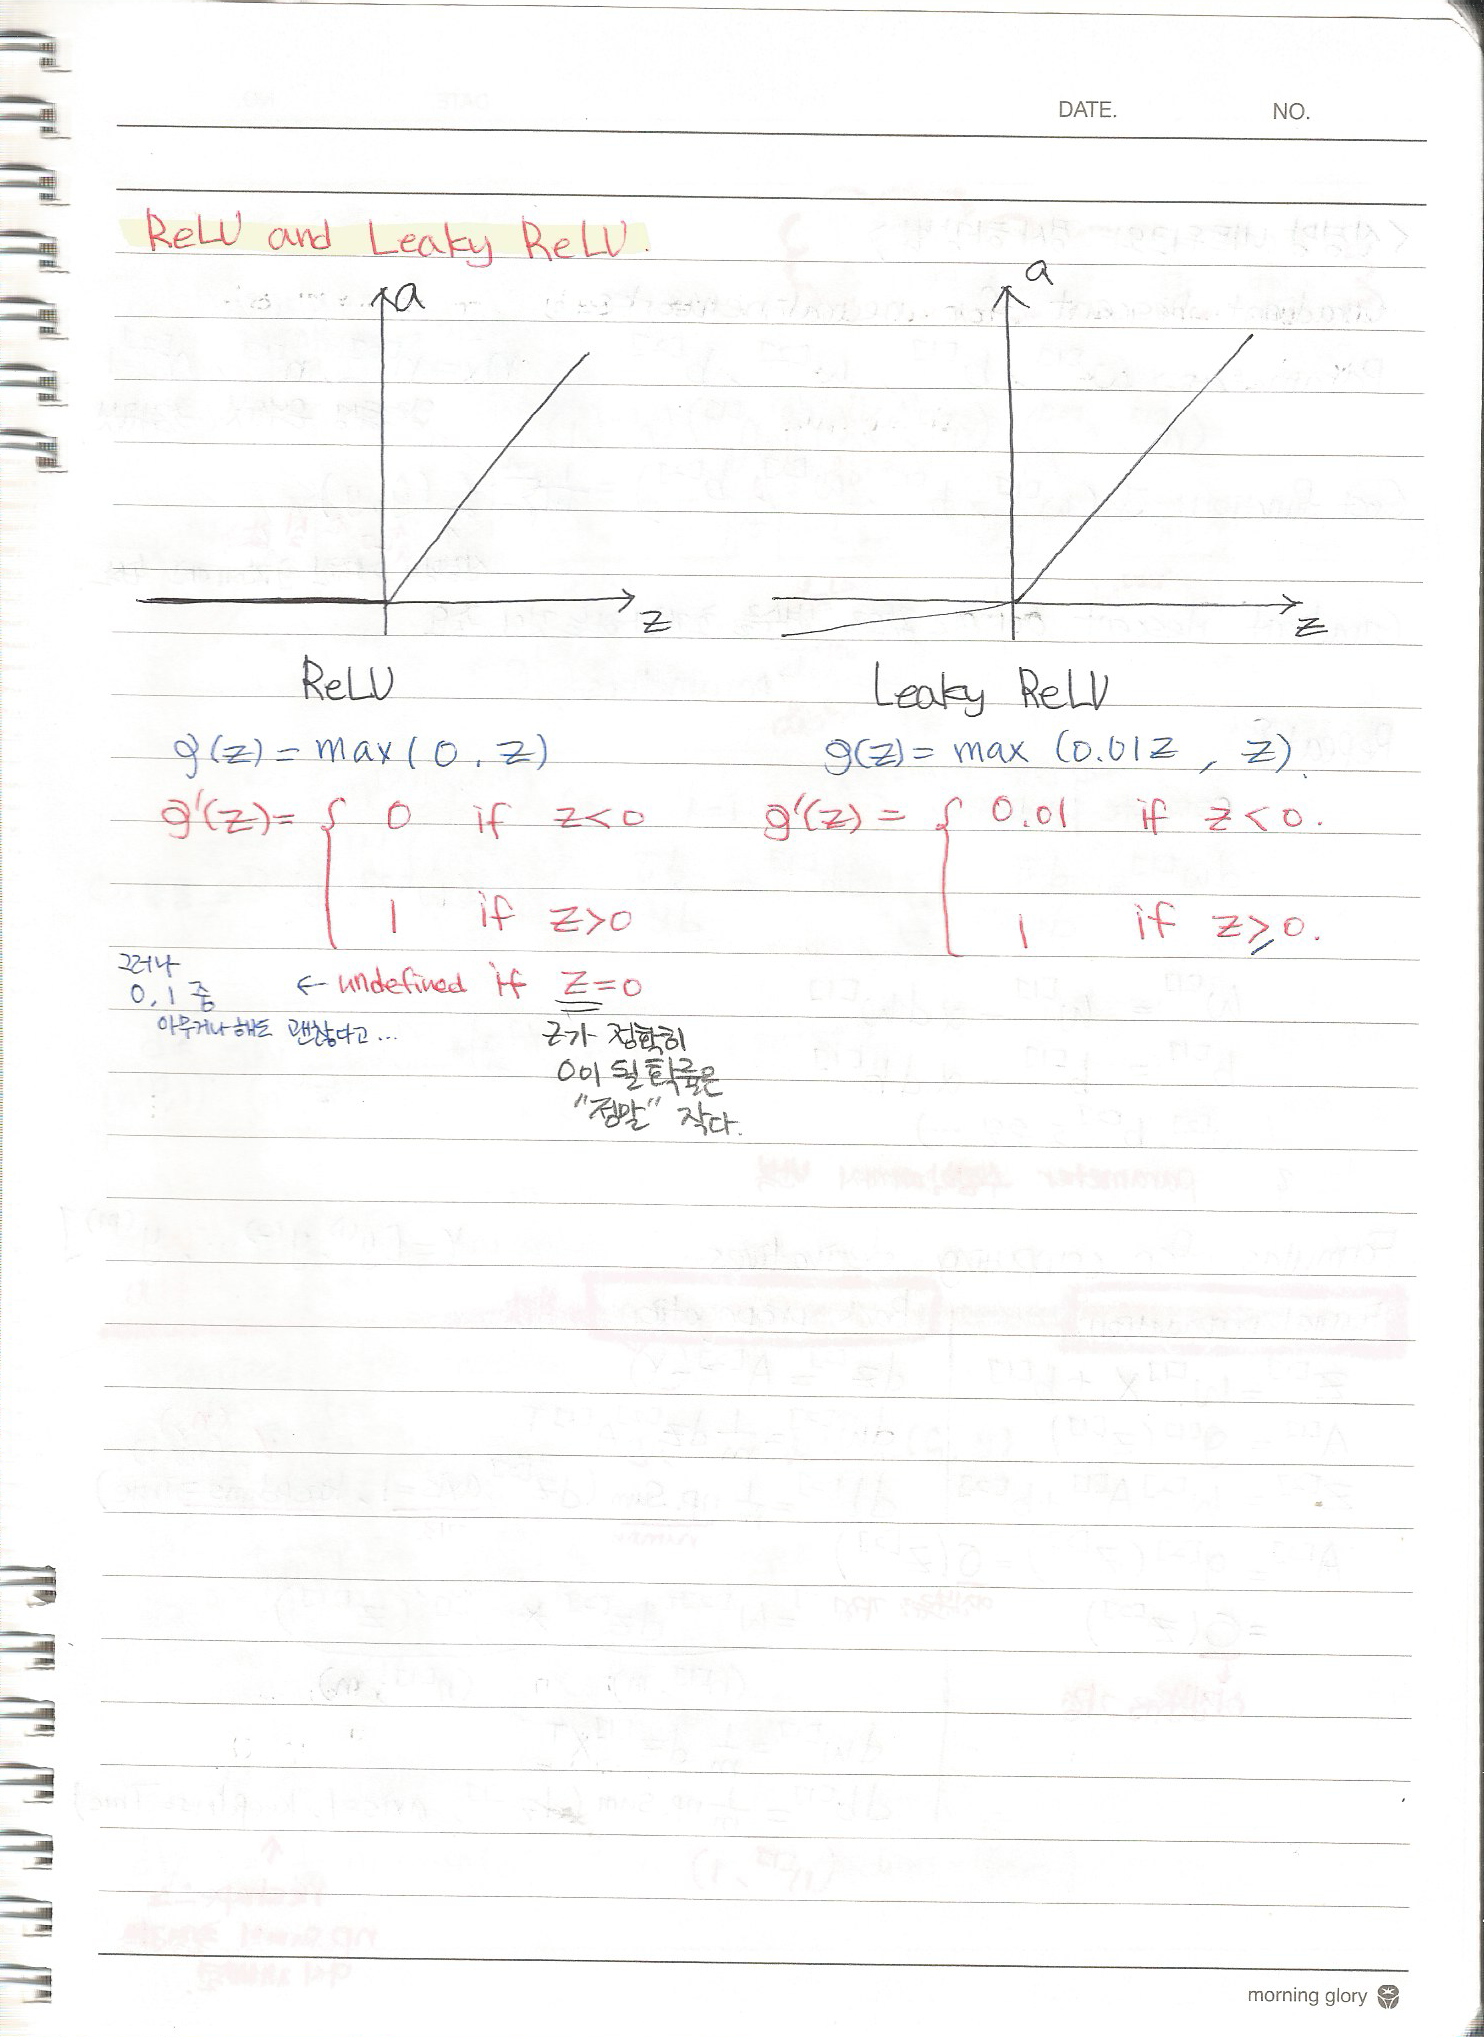 DATE. NO.
ReLU and Leaky ReLU.
a
z
ReLU
g(z) = max(0, z)
g'(z) = { 0 if z<0
1 if z>0
← undefined if z=0
그러나
0, 1 중
아무거나 해도 괜찮다고...
z가 정확히
0이 될 확률은
"정말" 작다.
a
z
Leaky ReLU
g(z) = max (0.01z , z).
g'(z) = { 0.01 if z<0.
1 if z≥0.
morning glory